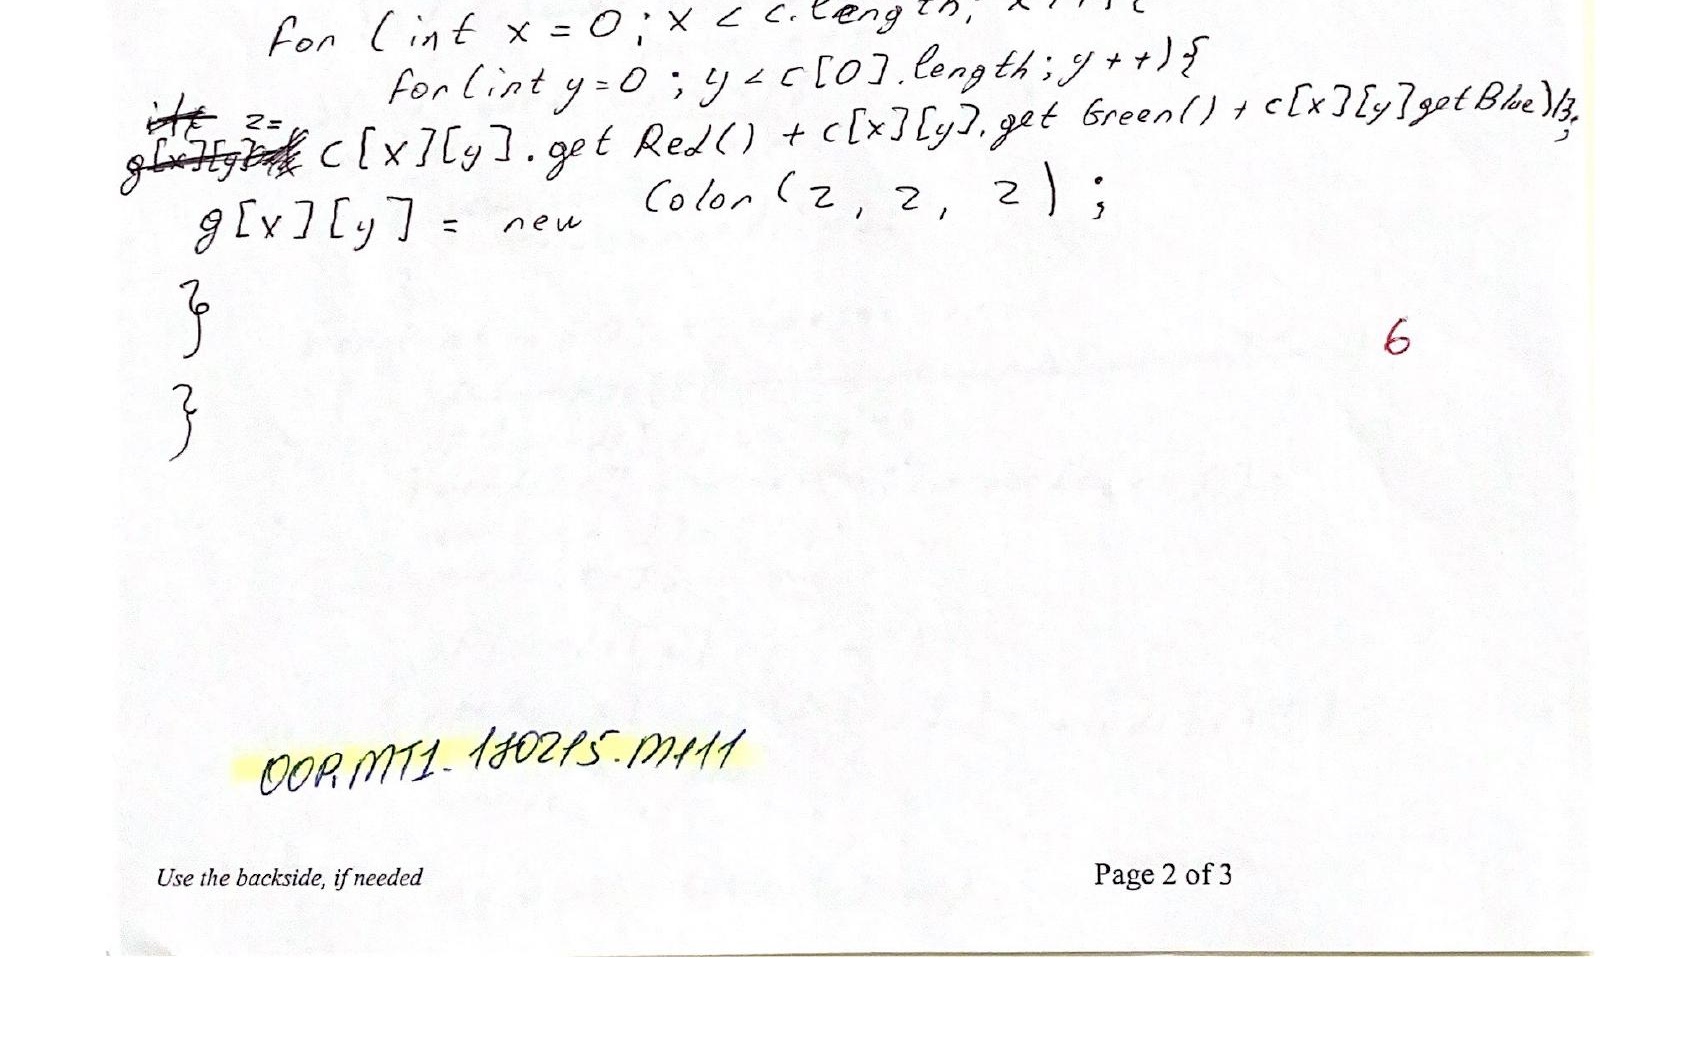 for (int x = 0; x < c.length;
for (int y=0; y < c[0].length; y++){
int z=
g[x][y] c[x][y].get Red() + c[x][y].get Green() + c[x][y]getBlue)/3.;
g[x][y] = new Color(z, z, z);
}
6
}
OOP.MT1-180215.M111
Use the backside, if needed Page 2 of 3